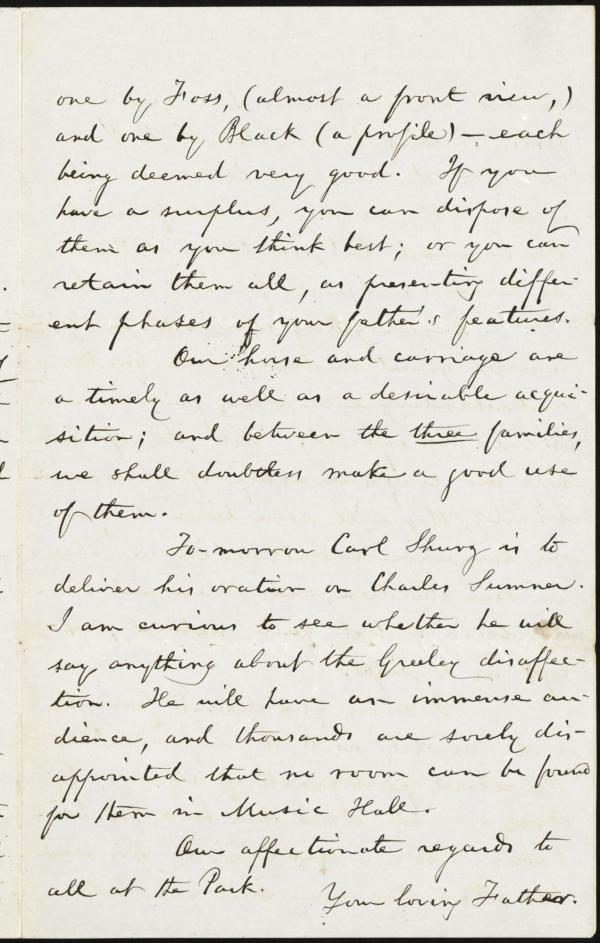 one by Foss, (almost a front view,)
and one by Black (a profile) — each
being deemed very good. If you
have a surplus, you can dispose of
them as you think best; or you can
retain them all, as presenting differ-
ent phases of your father's features.
Our horse and carriage are
a timely as well as a desirable acqui-
sition; and between the three families,
we shall doubtless make a good use
of them.
To-morrow Carl Shurz is to
deliver his oration on Charles Sumner.
I am curious to see whether he will
say anything about the Greeley disaffec-
tion. He will have an immense au-
dience, and thousands are sorely dis-
appointed that no room can be found
for them in Music Hall.
Our affectionate regards to
all at the Park.
Your loving Father.